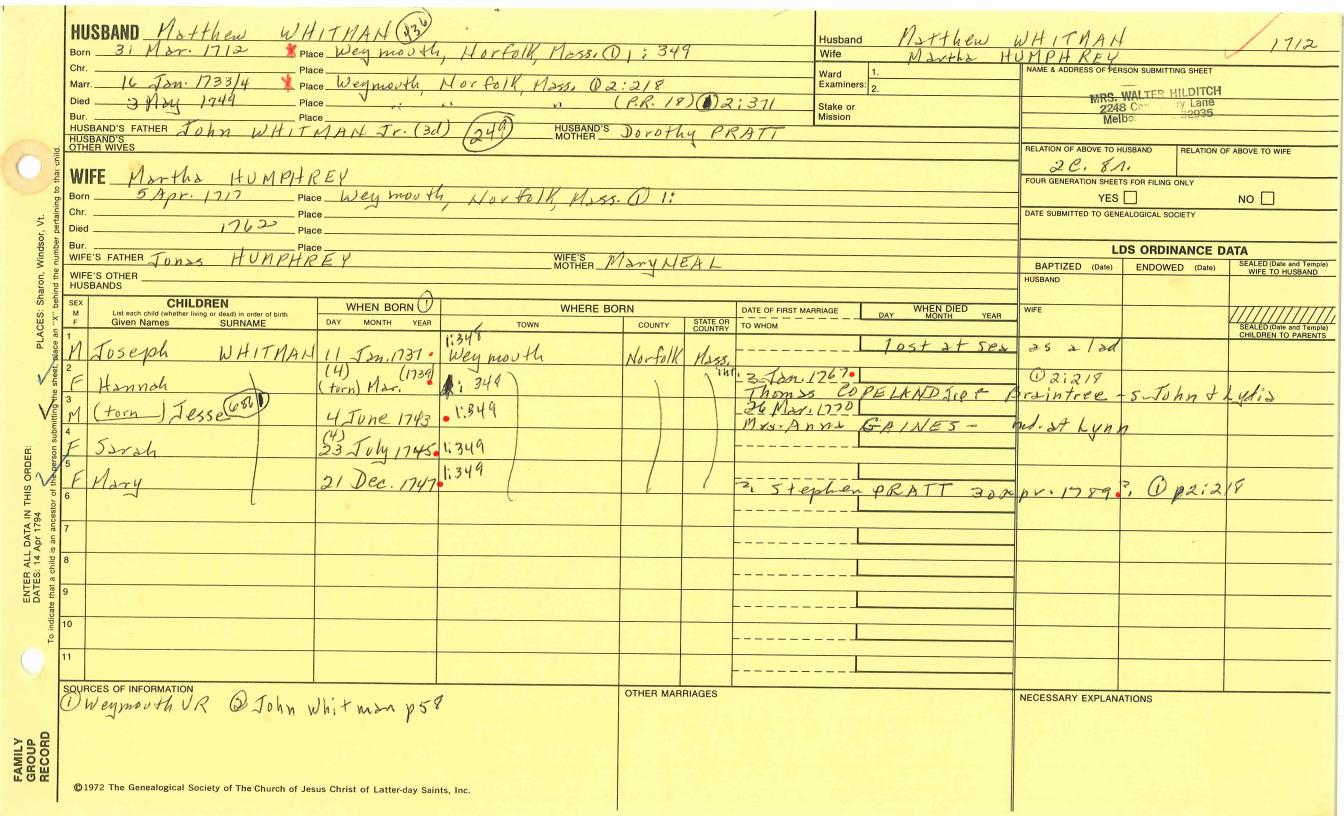 HUSBAND Matthew WHITMAN 436
Born 31 Mar. 1712 Place Weymouth, Norfolk, Mass. ① 1: 349
Chr. Place
Marr. 16 Jan. 1733/4 Place Weymouth, Norfolk, Mass. ① 2:218
Died 3 May 1749 Place " " " (P.R. 18) ① 2:371
Bur. Place
HUSBAND'S FATHER John WHITMAN Jr. (3d) 249 HUSBAND'S MOTHER Dorothy PRATT
HUSBAND'S OTHER WIVES
Husband Matthew WHITMAN 1712
Wife Martha HUMPHREY
Ward Examiners: 1.
2.
Stake or Mission
NAME & ADDRESS OF PERSON SUBMITTING SHEET
MRS. WALTER HILDITCH
2248 Lane
Melbo 32935
RELATION OF ABOVE TO HUSBAND RELATION OF ABOVE TO WIFE
2C. 8r.
FOUR GENERATION SHEETS FOR FILING ONLY
YES NO
DATE SUBMITTED TO GENEALOGICAL SOCIETY
WIFE Martha HUMPHREY
Born 5 Apr. 1717 Place Weymouth, Norfolk, Mass. ① 1:
Chr. Place
Died 1762 Place
Bur. Place
WIFE'S FATHER Jonas HUMPHREY WIFE'S MOTHER Mary NEAL
WIFE'S OTHER HUSBANDS
LDS ORDINANCE DATA
BAPTIZED (Date) ENDOWED (Date) SEALED (Date and Temple) WIFE TO HUSBAND
HUSBAND
WIFE
SEALED (Date and Temple) CHILDREN TO PARENTS
SEX M F CHILDREN WHEN BORN ① WHERE BORN DATE OF FIRST MARRIAGE WHEN DIED
List each child (whether living or dead) in order of birth
Given Names SURNAME DAY MONTH YEAR TOWN COUNTY STATE OR COUNTRY TO WHOM DAY MONTH YEAR
1 M Joseph WHITMAN 11 Jan. 1737 1:348 Weymouth Norfolk Mass. lost at sea as a lad
2 F Hannah (4) (torn) Mar. (1739 1: 349 int. 3 Jan. 1767 ① 2:218
Thomas COPELAND Braintree - s. John & Lydia
3 M (torn) Jesse 686 4 June 1743 1:349 26 Mar. 1770
Mrs. Anna GAINES - at Lynn
4 F Sarah (4) 23 July 1745 1:349
5 F Mary 21 Dec. 1747 1:349
? Stephen PRATT 30 Apr. 1789 ? ① p2:218
6
7
8
9
10
11
SOURCES OF INFORMATION
① Weymouth VR ② John Whitman p58
OTHER MARRIAGES
NECESSARY EXPLANATIONS
©1972 The Genealogical Society of The Church of Jesus Christ of Latter-day Saints, Inc.
FAMILY GROUP RECORD
ENTER ALL DATA IN THIS ORDER: PLACES: Sharon, Windsor, Vt.
DATES: 14 Apr 1794
To indicate that a child is an ancestor of the person submitting the sheet, place an "X" behind the number pertaining to that child.